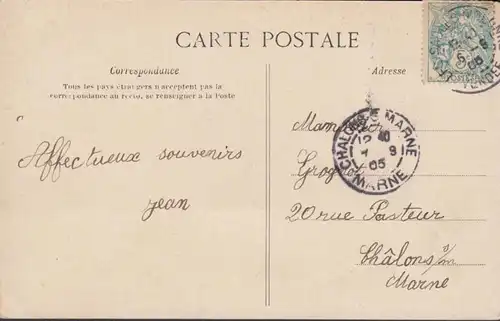 CARTE POSTALE
Correspondance
Tous les pays étrangers n'acceptent pas la
correspondance au recto, se renseigner à la Poste
Affectueux souvenirs
Jean
Adresse
20 rue Pasteur
Châlons s/m
Marne
CHALONS MARNE
9
05
MARNE